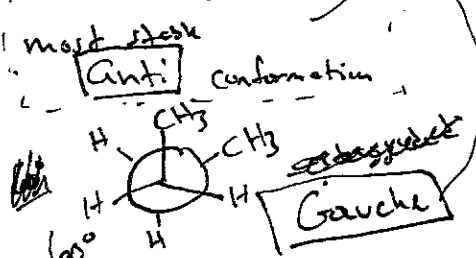 most stable
Anti conformation
CH3
H CH3
H H
Gauche
60° H